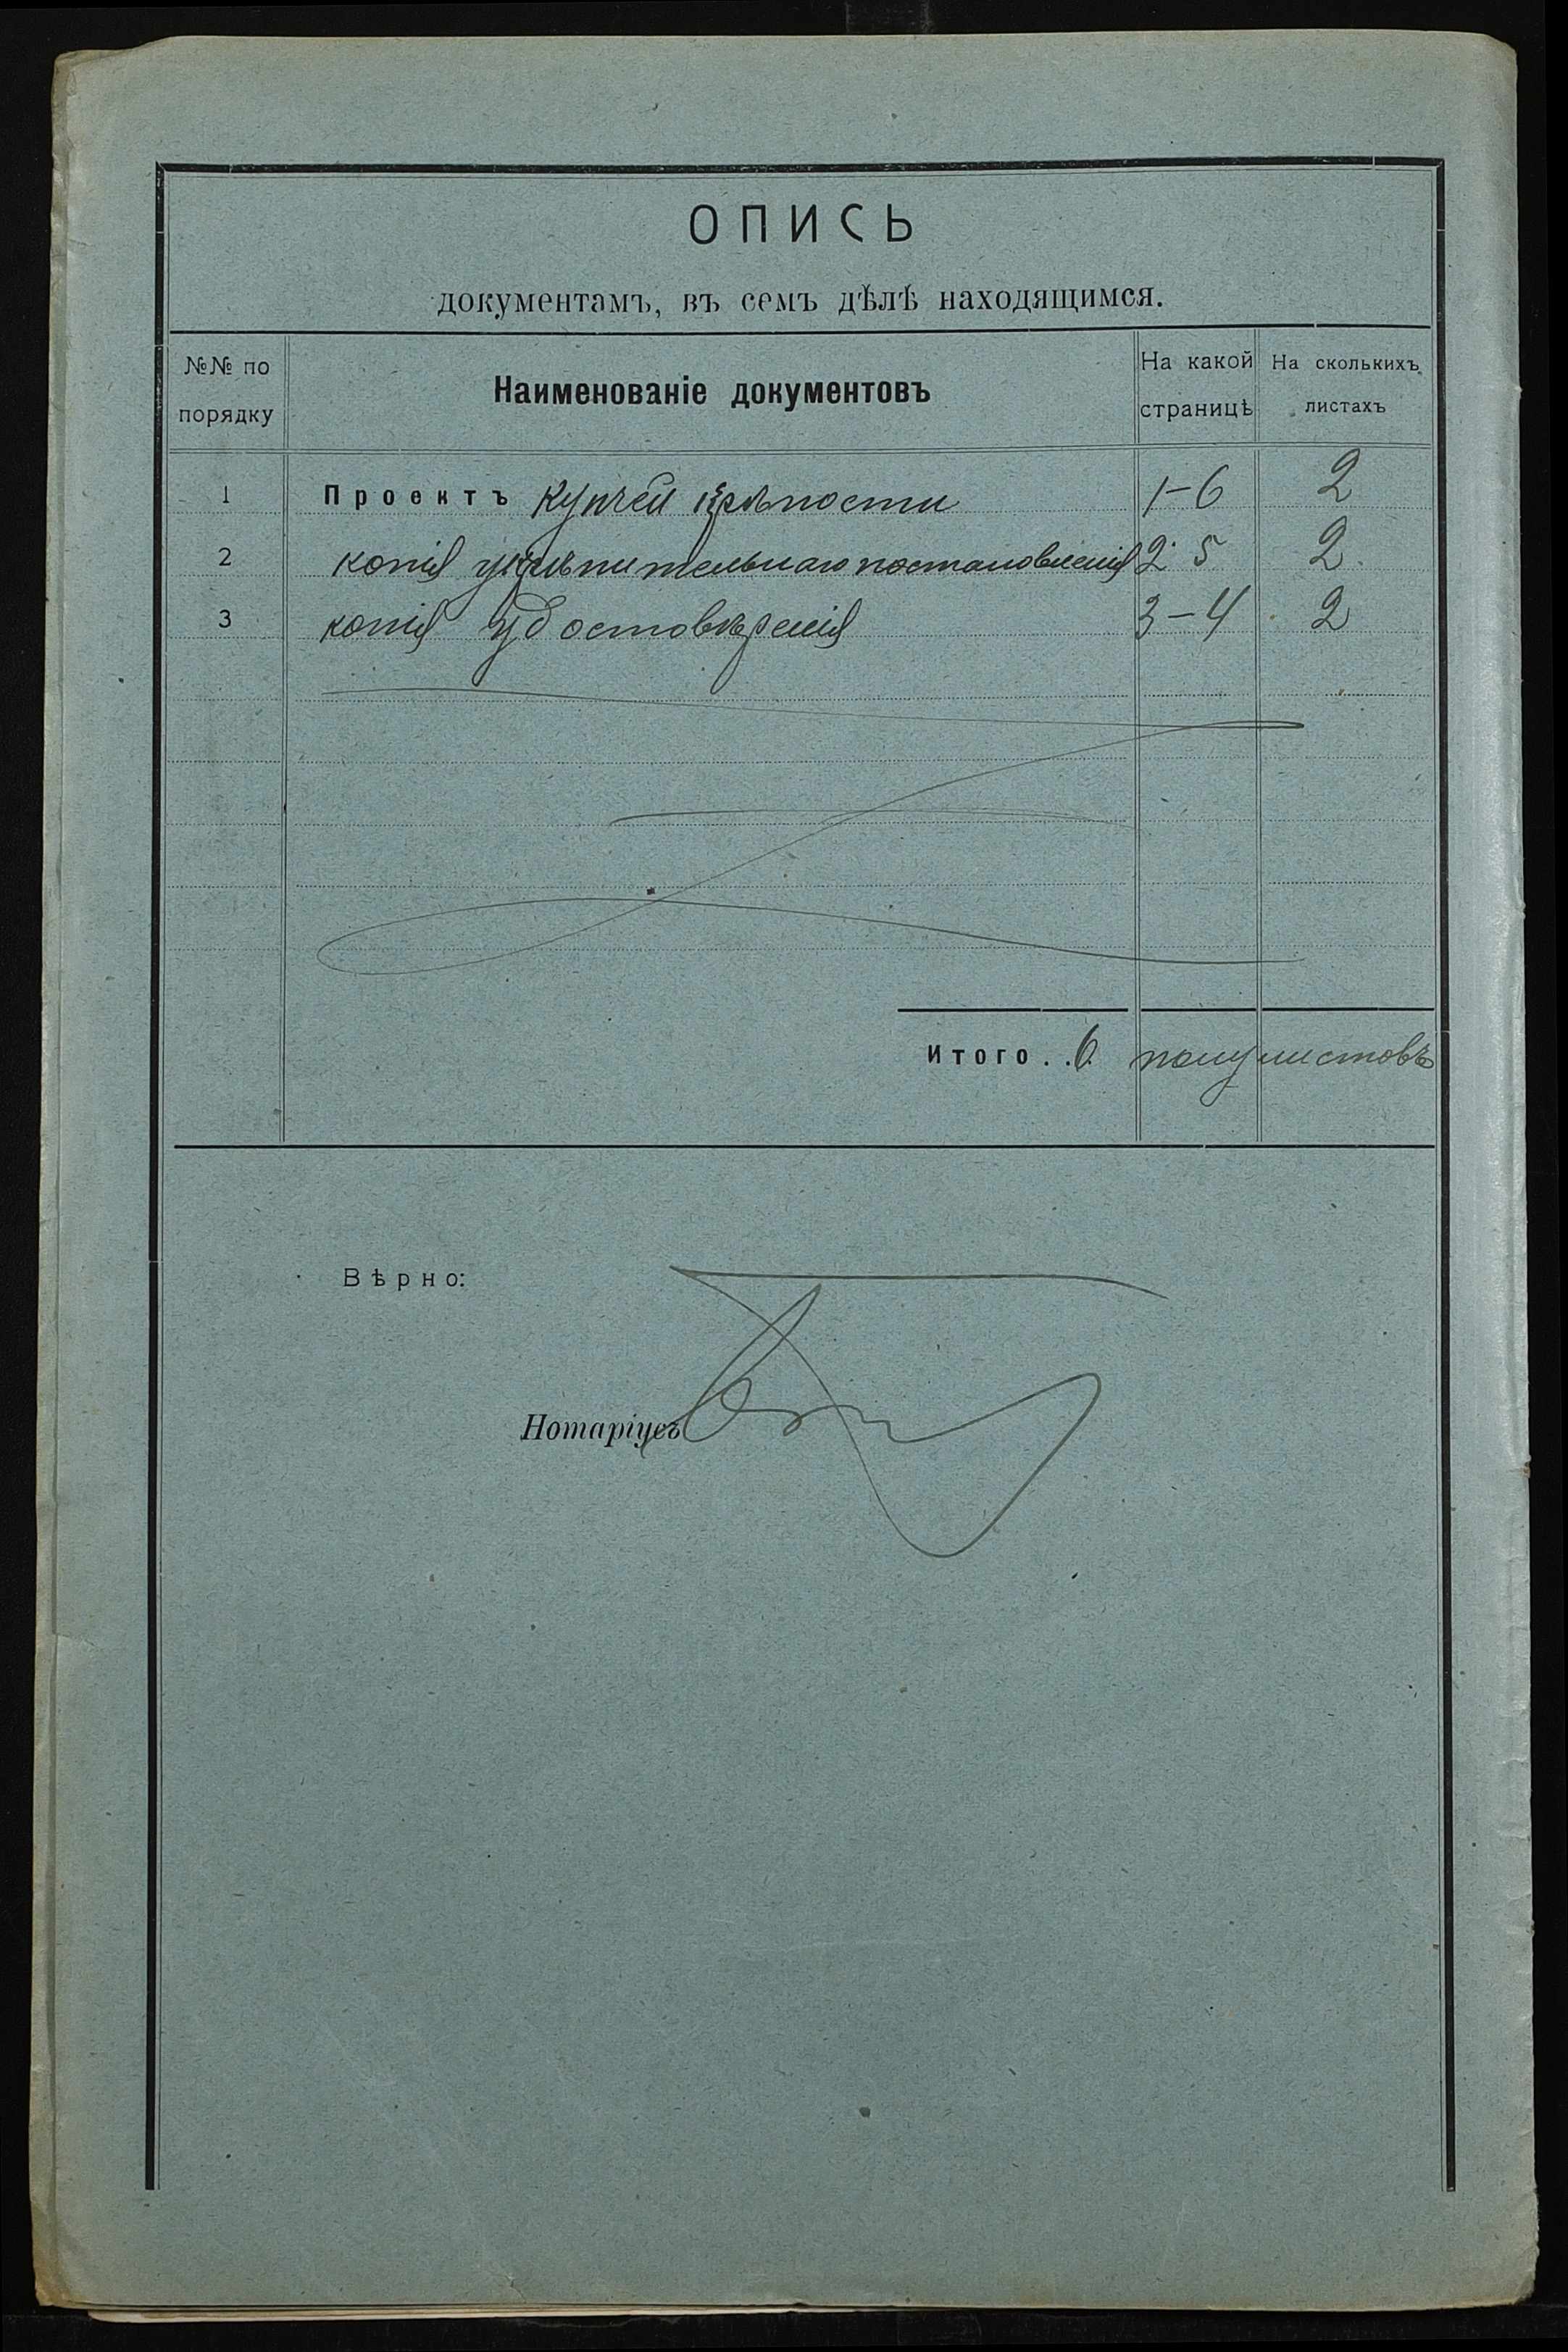 ОПИСЬ
документамъ, въ семъ дѣлѣ находящимся.
№№ по порядку
Наименованіе документовъ
На какой страницѣ
На сколькихъ листахъ
1 Проектъ купчей крѣпости 1-6 2
2 копія укрѣпительнаго постановленія 2 5 2
3 копія удостовѣренія 3-4 2
Итого . . 6 полулистовъ
Вѣрно:
Нотаріусъ